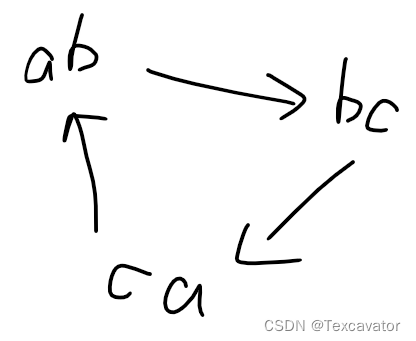 ab
bc
ca
CSDN @Texcavator